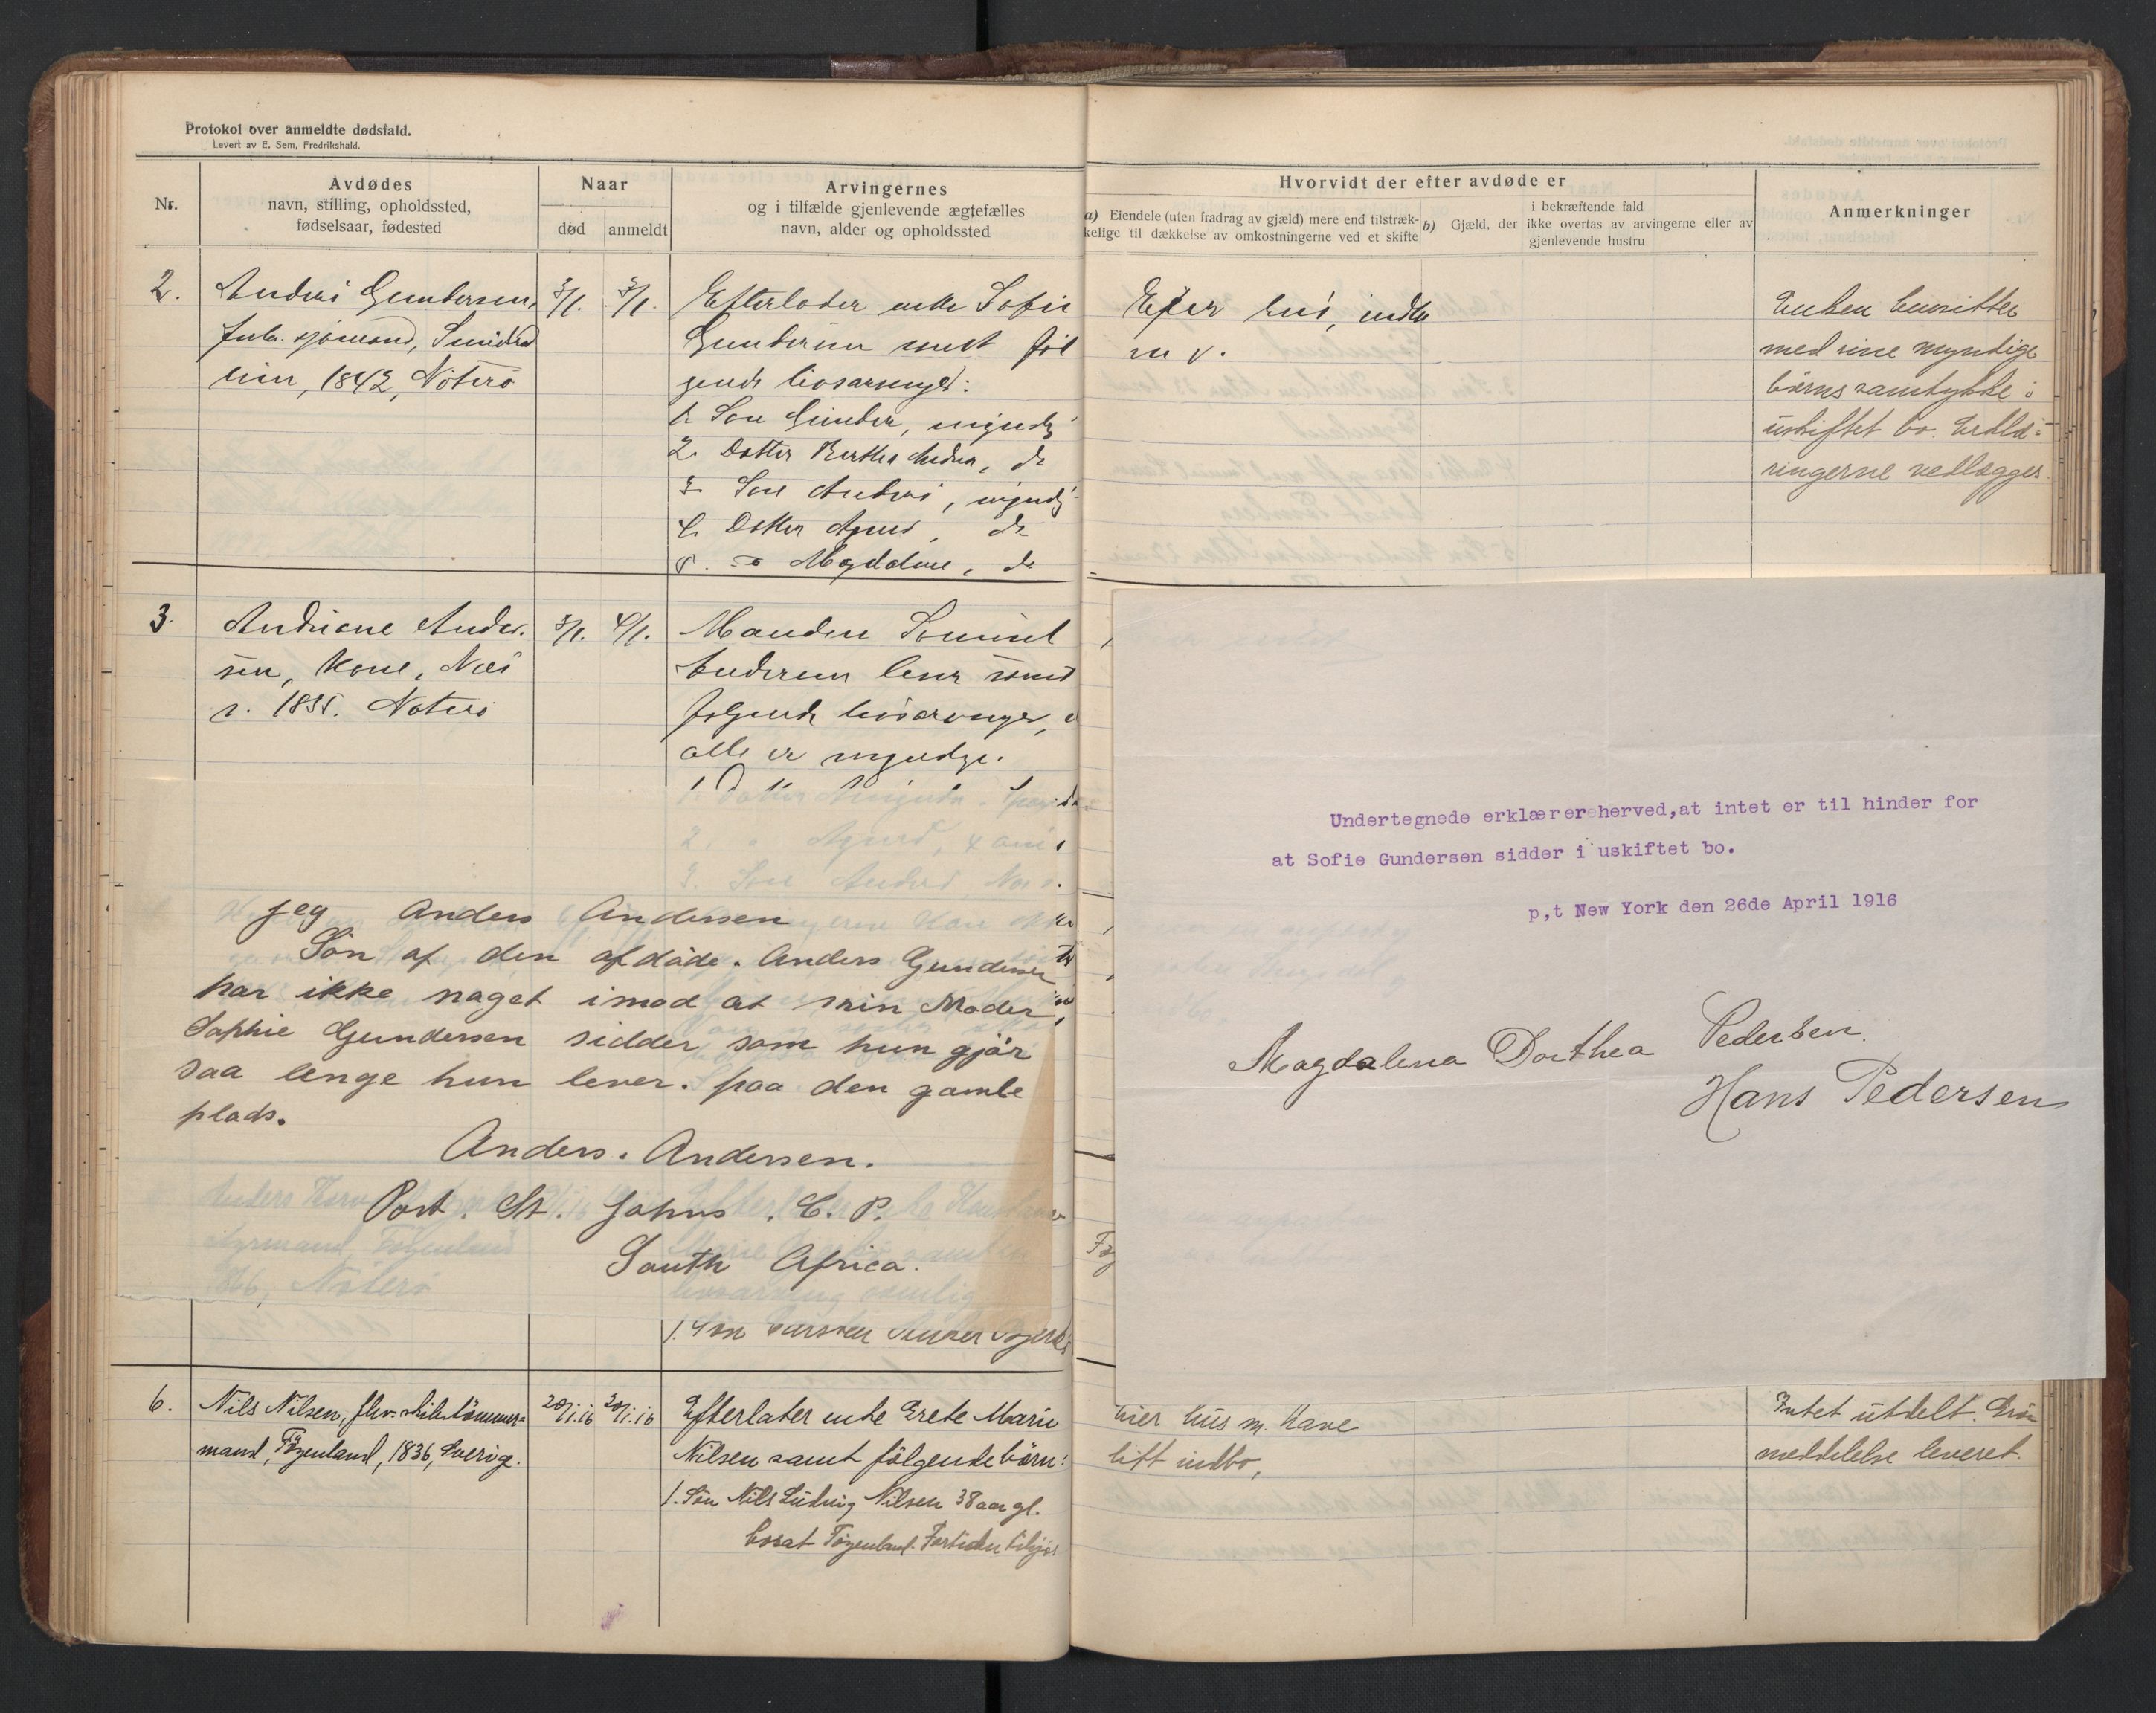 Protokol over anmeldte dødsfald.
Levert av E. Sem, Fredrikshald.
Nr.
Avdødes
navn, stilling, opholdssted,
fødselsaar, fødested
Naar
død
anmeldt
Arvingernes
og i tilfælde gjenlevende ægtefælles
navn, alder og opholdssted
Hvorvidt der efter avdøde er
a) Eiendele (uten fradrag av gjæld) mere end tilstræk-
kelige til dækkelse av omkostningerne ved et skifte
b) Gjæld, der
i bekræftende fald
ikke overtas av arvingerne eller av
gjenlevende hustru
Anmerkninger
2.
Anders Gundersen,
sjømand,
1842, Nøterø
3/1.
3/1.
Efterlader enke Sofie
Gundersen samt føl
gende livsarvinger:
1. Søn Gunder, myndig
2. Datter Berthea, do
3. Søn Anders, myndig
4. Datter Agnes, do
5. do Magdalene, do
Eier hus, indbo
m v.
Enken hensitter
med sine myndige
børns samtykke i
uskiftet bo. Erklæ-
ringerne vedlægges.
3.
Andriane Ander-
sen, Kone, Næs
Nøterø
3/1.
4/1.
Manden
Andersen lever samt
følgende livsarvinger,
alle er myndige.
1. Datter
2. " Agnes,
3. Søn Anders
Jeg Anders Andersen
Sön af den afdöde. Anders Gundersen
har ikke naget imod at min Moder,
Sophie Gundersen sidder som hun gjör
saa lenge hun lever. paa den gamle
plads.
Anders. Andersen.
Port. St. Johns. C. P.
South Africa.
Nøterø
1. Søn
Undertegnede erklærer herved,at intet er til hinder for
at Sofie Gundersen sidder i uskiftet bo.
p,t New York den 26de April 1916
Magdalena Dorthea Pedersen.
Hans Pedersen
6.
Nils Nilsen, fhv. skibstömmer=
mand, Föyenland, 1836, Sverige.
20/1.16
20/1.16
Efterlater enke Grete Marie
Nilsen samt fölgende börn:
1. Sön Nils Ludvig Nilsen 38 aar gl.
bosat Föyenland. Fortiden tilsjøs
Eier hus m. Have
litt indbo,
Intet utdelt.
meddelelse leveret.